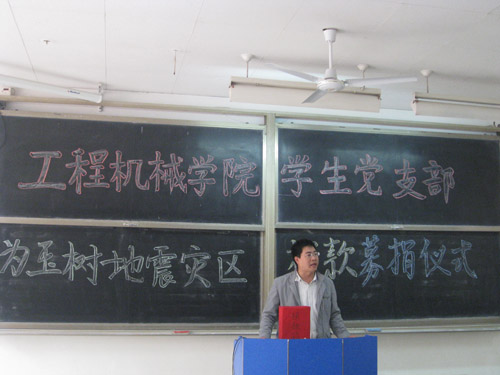 工程机械学院 学生党支部
为玉树地震灾区 款募捐仪式